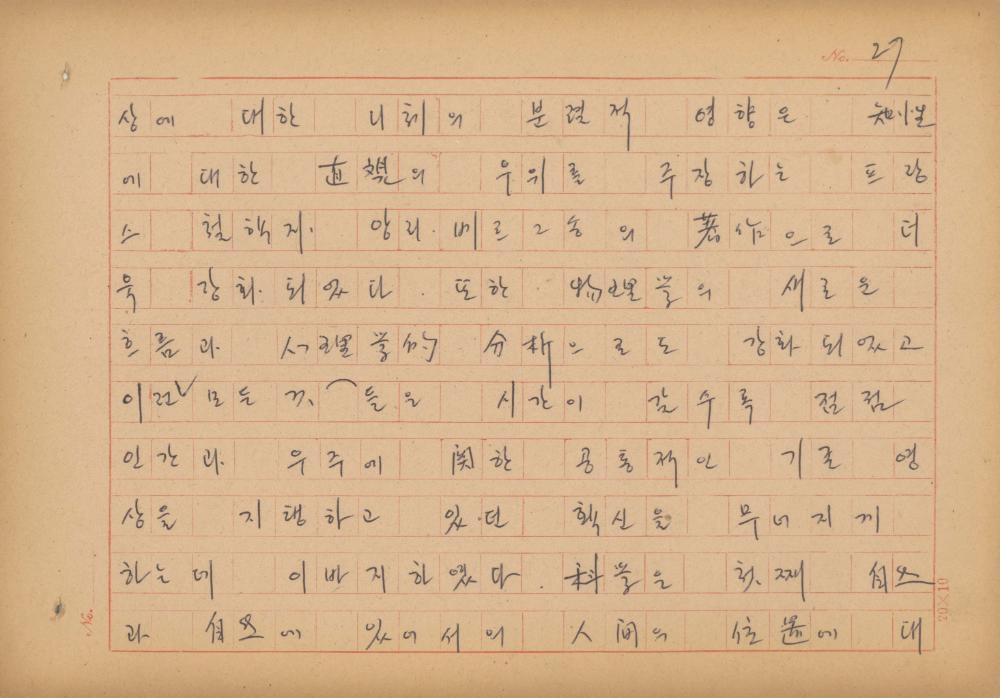 No. 27
상에 대한 니체의 분열적 영향은 知性
에 대한 直覺의 우위를 주장하는 프랑
스 철학자. 앙리. 베르그송의 著作으로 더
욱 강화. 되었다. 또한 物理學의 새로운
흐름과 心理學的 分析으로도 강화 되었고
이런 모든 것들은 시간이 갈수록 점점
인간과 우주에 関한 공통적인 기존 영
상을 지탱하고 있던 확신을 무너지게
하는데 이바지하였다. 科學은 첫째 自然
과 自然에 있어서의 人間의 位置에 대
No.
20×10